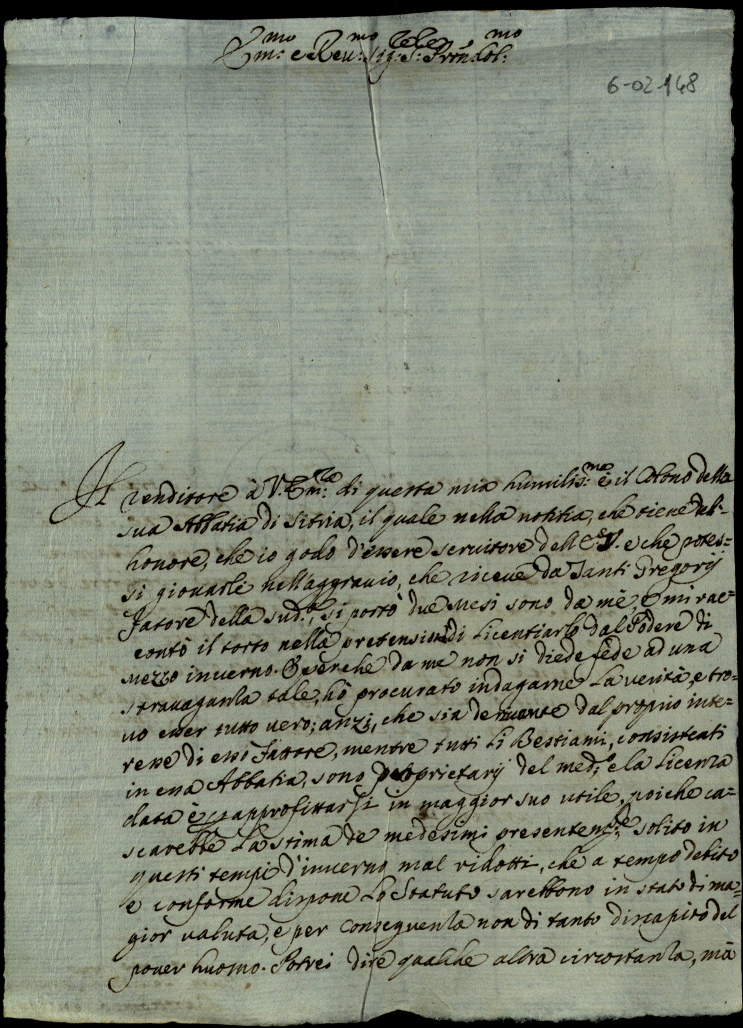 Em:mo e Reu:mo Sig:r S:r Pron Col:mo
6-02-148
Il renditore à V. Em:za di questa mia humilis:ma è il Colono della
sua Abbatia di Sitria, il quale nella notitia, che tiene dell'
honore, che io godo d'essere seruitore dell'E. V. e che potes=
si giouarli nell'aggrauio, che riceue da Santi Gregorij
Fatore della sud:a, si portò due mesi sono da mè, e mi rac=
contò il torto nella pretensione di Licentiarlo dal Podere di
mezzo inuerno. E perche da me non si diede fede ad una
strauaganza tale, hò procurato indagarne la verità, e tro=
uo esser tutto vero; anzi, che sia deriuante dal proprio inte=
resse di essi Fattore, mentre tutti li Bestiami, consistenti
in essa Abbatia, sono proprietarij del med:o e la Licenza
data è approfittarsi in maggior suo utile, poiche ca=
scarebbe la stima de medesimi presentem:te solito in
questi tempi d'inuerno mal ridotti, che a tempo debito
e conforme dispone lo Statuto sarebbono in stato di ma=
gior valuta, e per conseguenza non di tanto discapito del
pouer huomo. Potrei dire qualche altra circostanza, mà